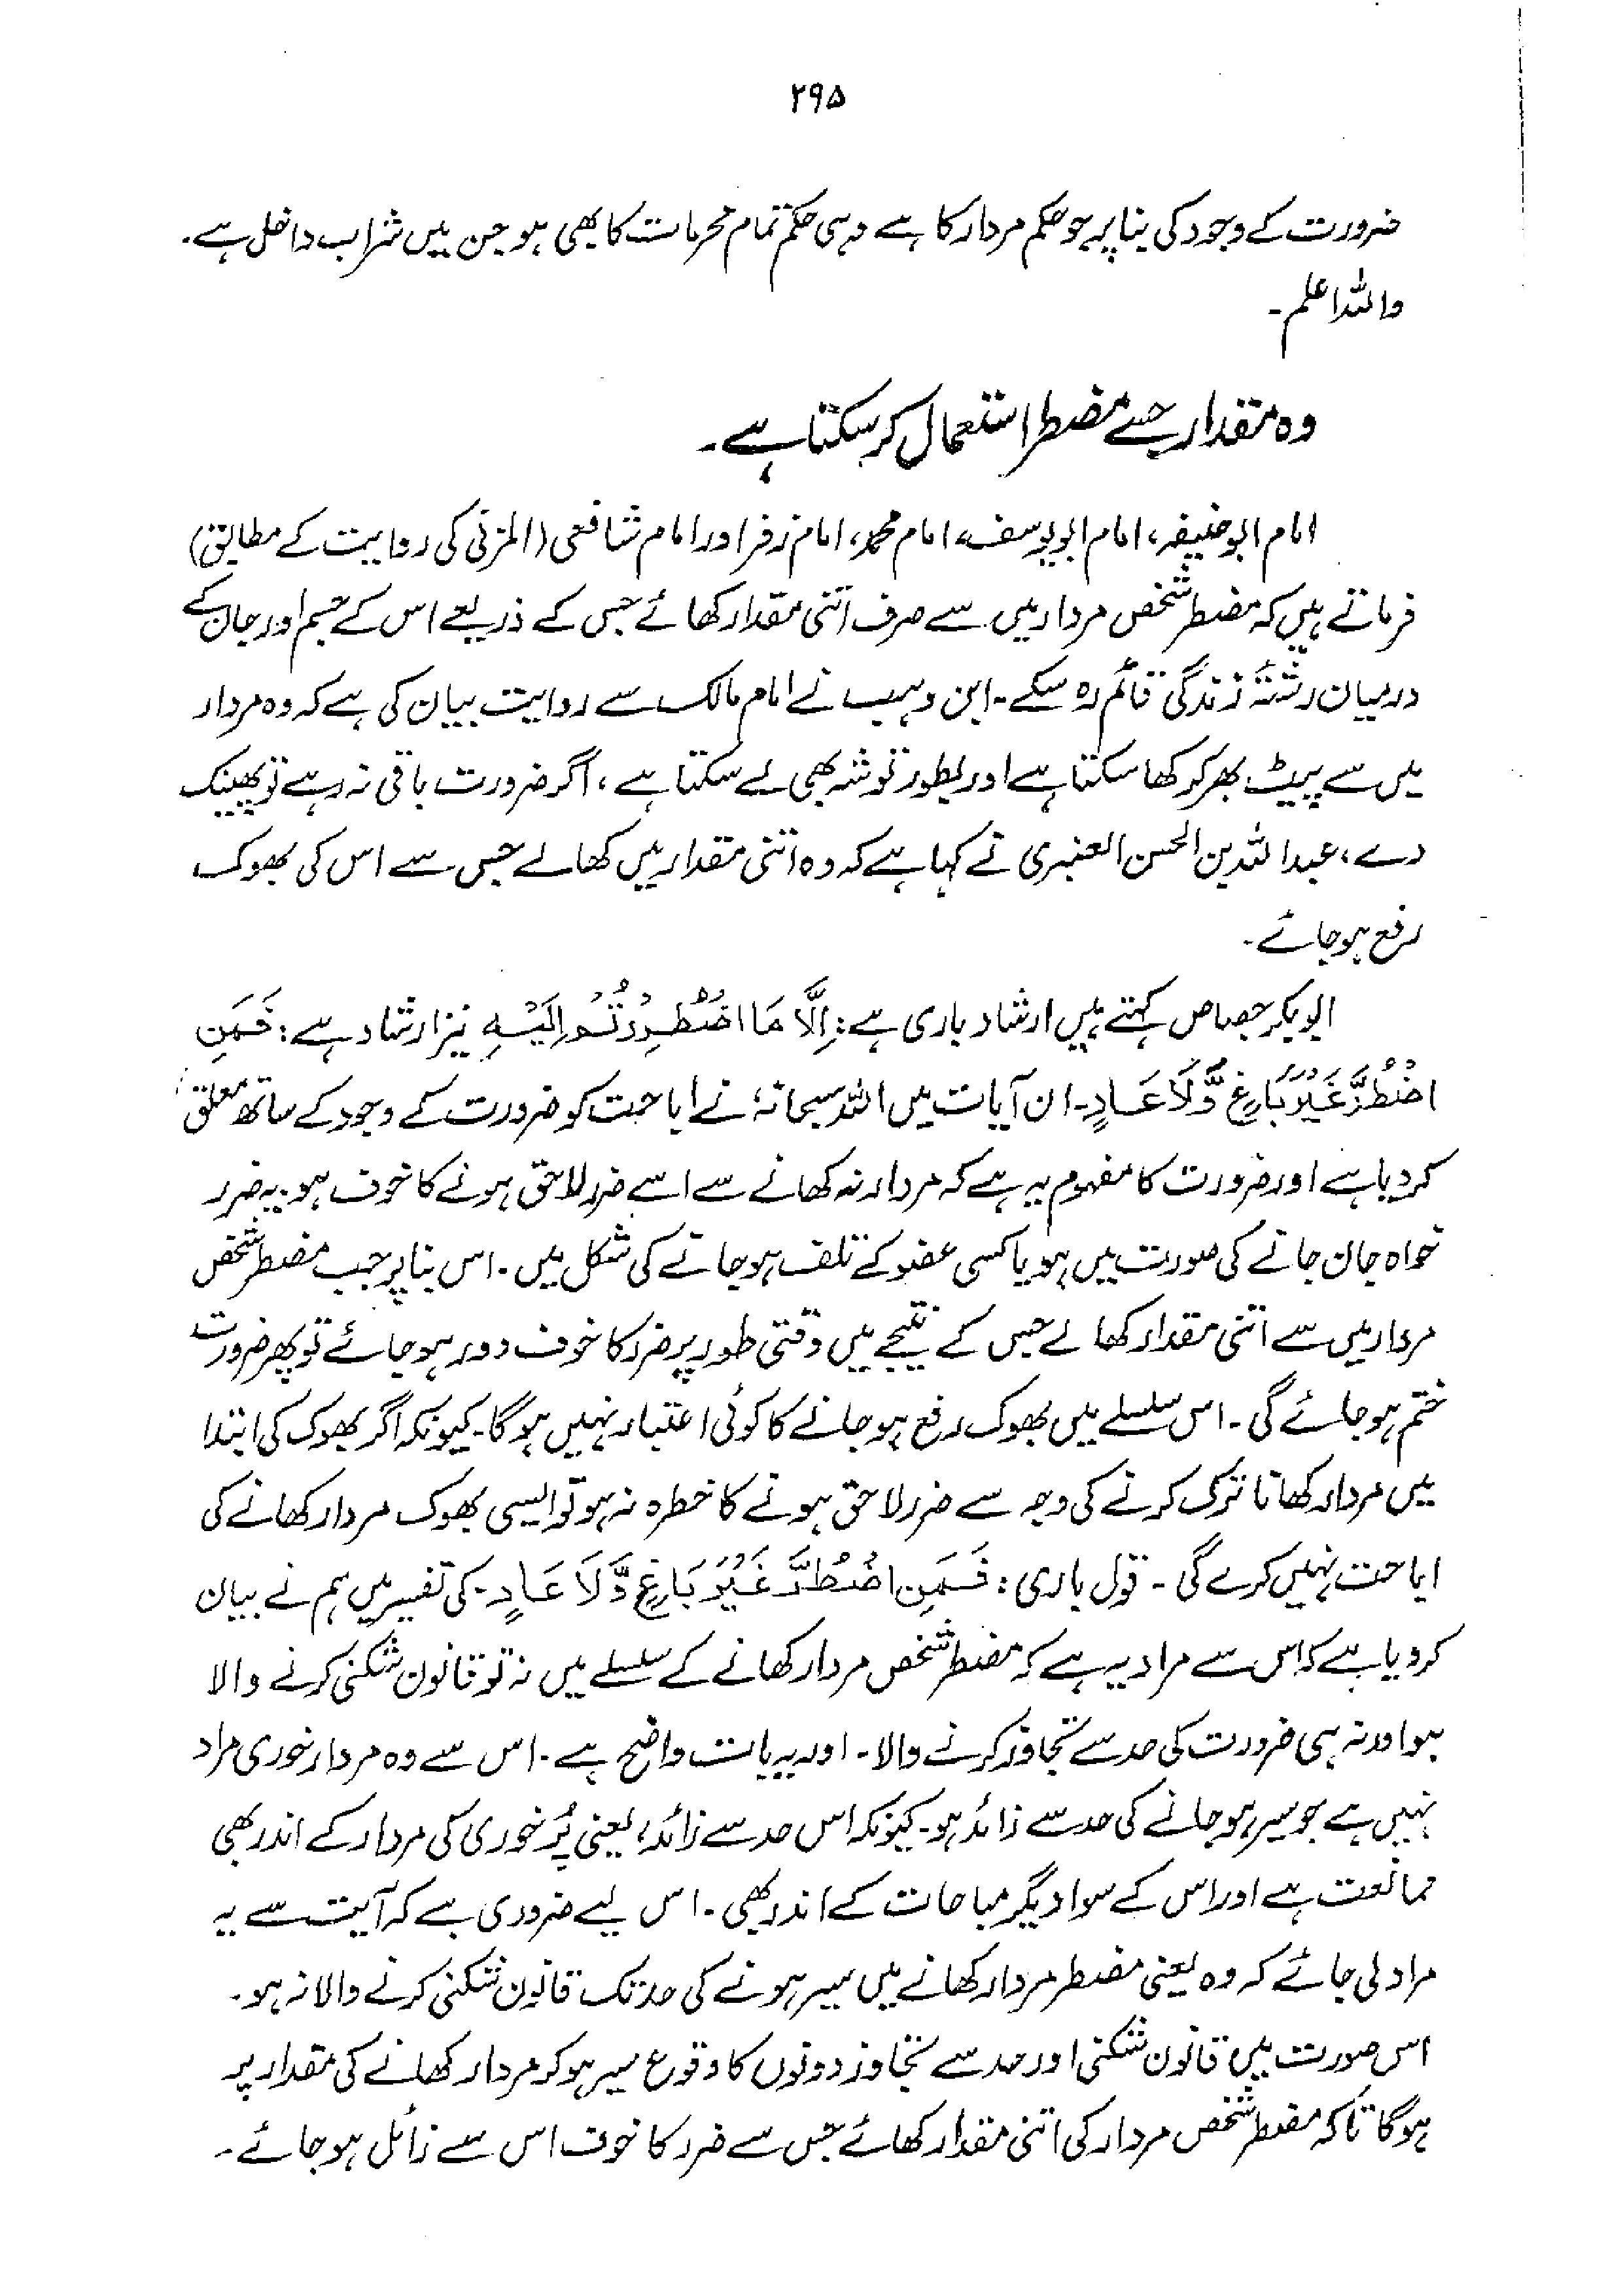 ۲۹۵
ضرورت کے وجود کی بنا پر جو حکم مردار کا ہے وہی حکم تمام محرمات کا بھی ہو جن میں شراب داخل ہے۔
واللہ اعلم۔
وہ مقدار جسے مضطر استعمال کر سکتا ہے۔
امام ابو حنیفہ، امام ابو یوسف، امام محمد، امام زفر اور امام شافعی (المزنی کی روایت کے مطابق)
فرماتے ہیں کہ مضطر شخص مردار میں سے صرف اتنی مقدار کھائے جس کے ذریعے اس کے جسم اور جان کے
درمیان رشتۂ زندگی قائم رہ سکے۔ ابن وہب نے امام مالک سے روایت بیان کی ہے کہ وہ مردار
میں سے پیٹ بھر کر کھا سکتا ہے اور بطور توشہ بھی لے سکتا ہے، اگر ضرورت باقی نہ رہے تو پھینک
دے، عبداللہ بن الحسن العنبری نے کہا ہے کہ وہ اتنی مقدار میں کھالے جس سے اس کی بھوک
رفع ہو جائے۔
ابو بکر جصاص کہتے ہیں ارشاد باری ہے: اِلَّا مَا اضْطُرِرْتُمْ اِلَيْهِ نیز ارشاد ہے: فَمَنِ
اضْطُرَّ غَيْرَ بَاغٍ وَّلَا عَادٍ۔ ان آیات میں اللہ سبحانہٗ نے اباحت کو ضرورت کے وجود کے ساتھ معلق
کر دیا ہے اور ضرورت کا مفہوم یہ ہے کہ مردار نہ کھانے سے اسے ضرر لاحق ہونے کا خوف ہو۔ یہ ضرر
خواہ جان جانے کی صورت میں ہو یا کسی عضو کے تلف ہو جانے کی شکل میں۔ اس بنا پر جب مضطر شخص
مردار میں سے اتنی مقدار کھا لے جس کے نتیجے میں وقتی طور پر ضرر کا خوف دور ہو جائے تو پھر ضرورت
ختم ہو جائے گی۔ اس سلسلے میں بھوک رفع ہو جانے کا کوئی اعتبار نہیں ہوگا۔ کیونکہ اگر بھوک کی ابتدا
میں مردار کھانا ترک کرنے کی وجہ سے ضرر لاحق ہونے کا خطرہ نہ ہو تو ایسی بھوک مردار کھانے کی
اباحت نہیں کرے گی۔ قول باری: فَمَنِ اضْطُرَّ غَيْرَ بَاغٍ وَّلَا عَادٍ۔ کی تفسیر میں ہم نے بیان
کر دیا ہے کہ اس سے مراد یہ ہے کہ مضطر شخص مردار کھانے کے سلسلے میں نہ تو قانون شکنی کرنے والا
ہو اور نہ ہی ضرورت کی حد سے تجاوز کرنے والا۔ اور یہ بات واضح ہے۔ اس سے وہ مردار خوری مراد
نہیں ہے جو سیر ہو جانے کی حد سے زائد ہو۔ کیونکہ اس حد سے زائد، یعنی پُرخوری کی مردار کے اندر بھی
ممانعت ہے اور اس کے سوا دیگر مباحات کے اندر بھی۔ اس لیے ضروری ہے کہ آیت سے یہ
مراد لی جائے کہ وہ یعنی مضطر مردار کھانے میں سیر ہونے کی حد تک قانون شکنی کرنے والا نہ ہو۔
اس صورت میں قانون شکنی اور حد سے تجاوز دونوں کا وقوع سیر ہو کر مردار کھانے کی مقدار پر
ہوگا تاکہ مضطر شخص مردار کی اتنی مقدار کھائے جس سے ضرر کا خوف اس سے زائل ہو جائے۔